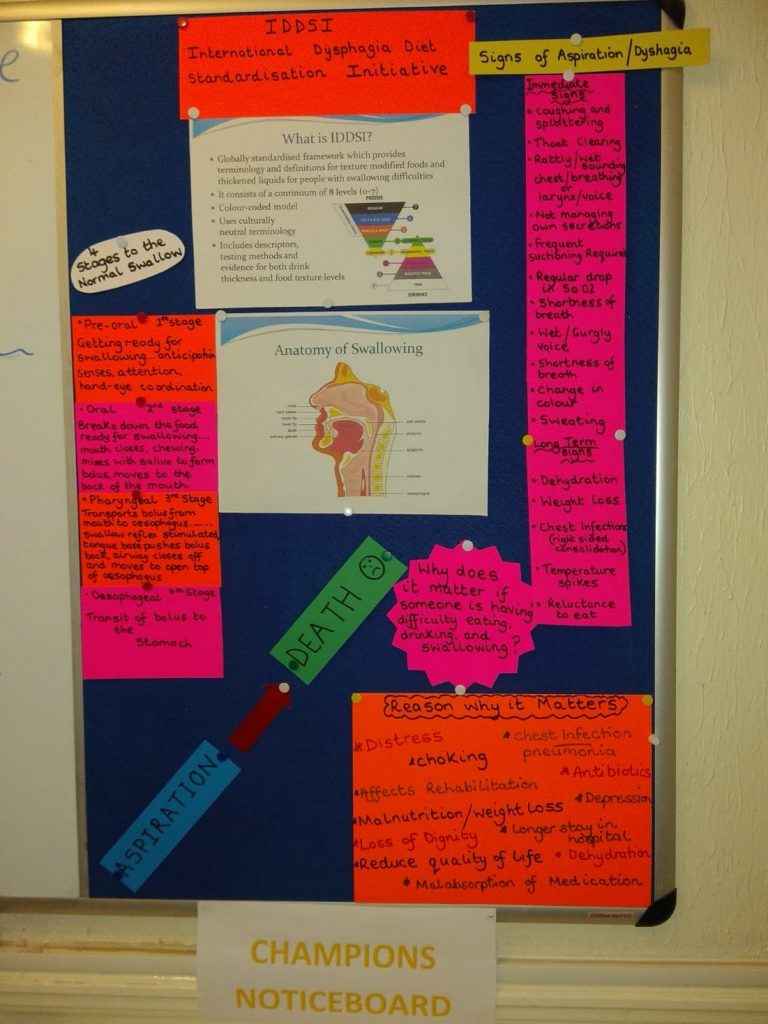 IDDSI
International Dysphagia Diet
Standardisation Initiative
Signs of Aspiration/Dyshagia
What is IDDSI?
• Globally standardised framework which provides
terminology and definitions for texture modified foods and
thickened liquids for people with swallowing difficulties
• It consists of a continuum of 8 levels (0-7)
• Colour-coded model
• Uses culturally
neutral terminology
• Includes descriptors,
testing methods and
evidence for both drink
thickness and food texture levels
FOODS
REGULAR
DRINKS
4
Stages to the
Normal Swallow
• Pre-oral 1st stage
Getting ready for
swallowing... anticipation
senses, attention,
hand-eye coordination
• Oral 2nd stage
Breaks down the food
ready for swallowing....
mouth closes, chewing,
mixes with saliva to form
bolus, moves to the
back of the mouth
• Pharyngeal 3rd Stage
Transports bolus from
mouth to oesophagus......
swallow reflex stimulated,
tongue base pushes bolus
back, airway closes off
and moves to open top
of oesophagus
• Oesophageal 4th Stage
Transit of bolus to
the
Stomach
Anatomy of Swallowing
hard palate
upper lip
lower lip
teeth
salivary glands
soft palate
pharynx
epiglottis
oesophagus
Immediate
Signs
• Coughing and
splittering
• Thoat Clearing
• Rattly/wet sounding
chest/breathing
or
larynx/voice
• Not managing
own secretions
• Frequent
suctioning Required
• Regular drop
in Sa O2
• Shortness of
breath
• Wet/Gurgly
voice
• Shortness of
breath
• Change in
colour
• Sweating
Long Term
Signs
• Dehydration
• Weight Loss
• Chest Infection
(right sided
consolidation)
• Temperature
spikes
• Reluctance
to eat
ASPIRATION
DEATH
Why does
it matter if
someone is having
difficulty eating,
drinking, and
swallowing?
Reason why it Matters
* Distress
* Chest Infection
pneumonia
* choking
* Antibiotics
* Affects Rehabilitation
* Depression
* Malnutrition/Weight Loss
* Loss of Dignity
* Longer stay in
hospital
* Reduce quality of life
* Dehydration
* Malabsorption of Medication
CHAMPIONS
NOTICEBOARD